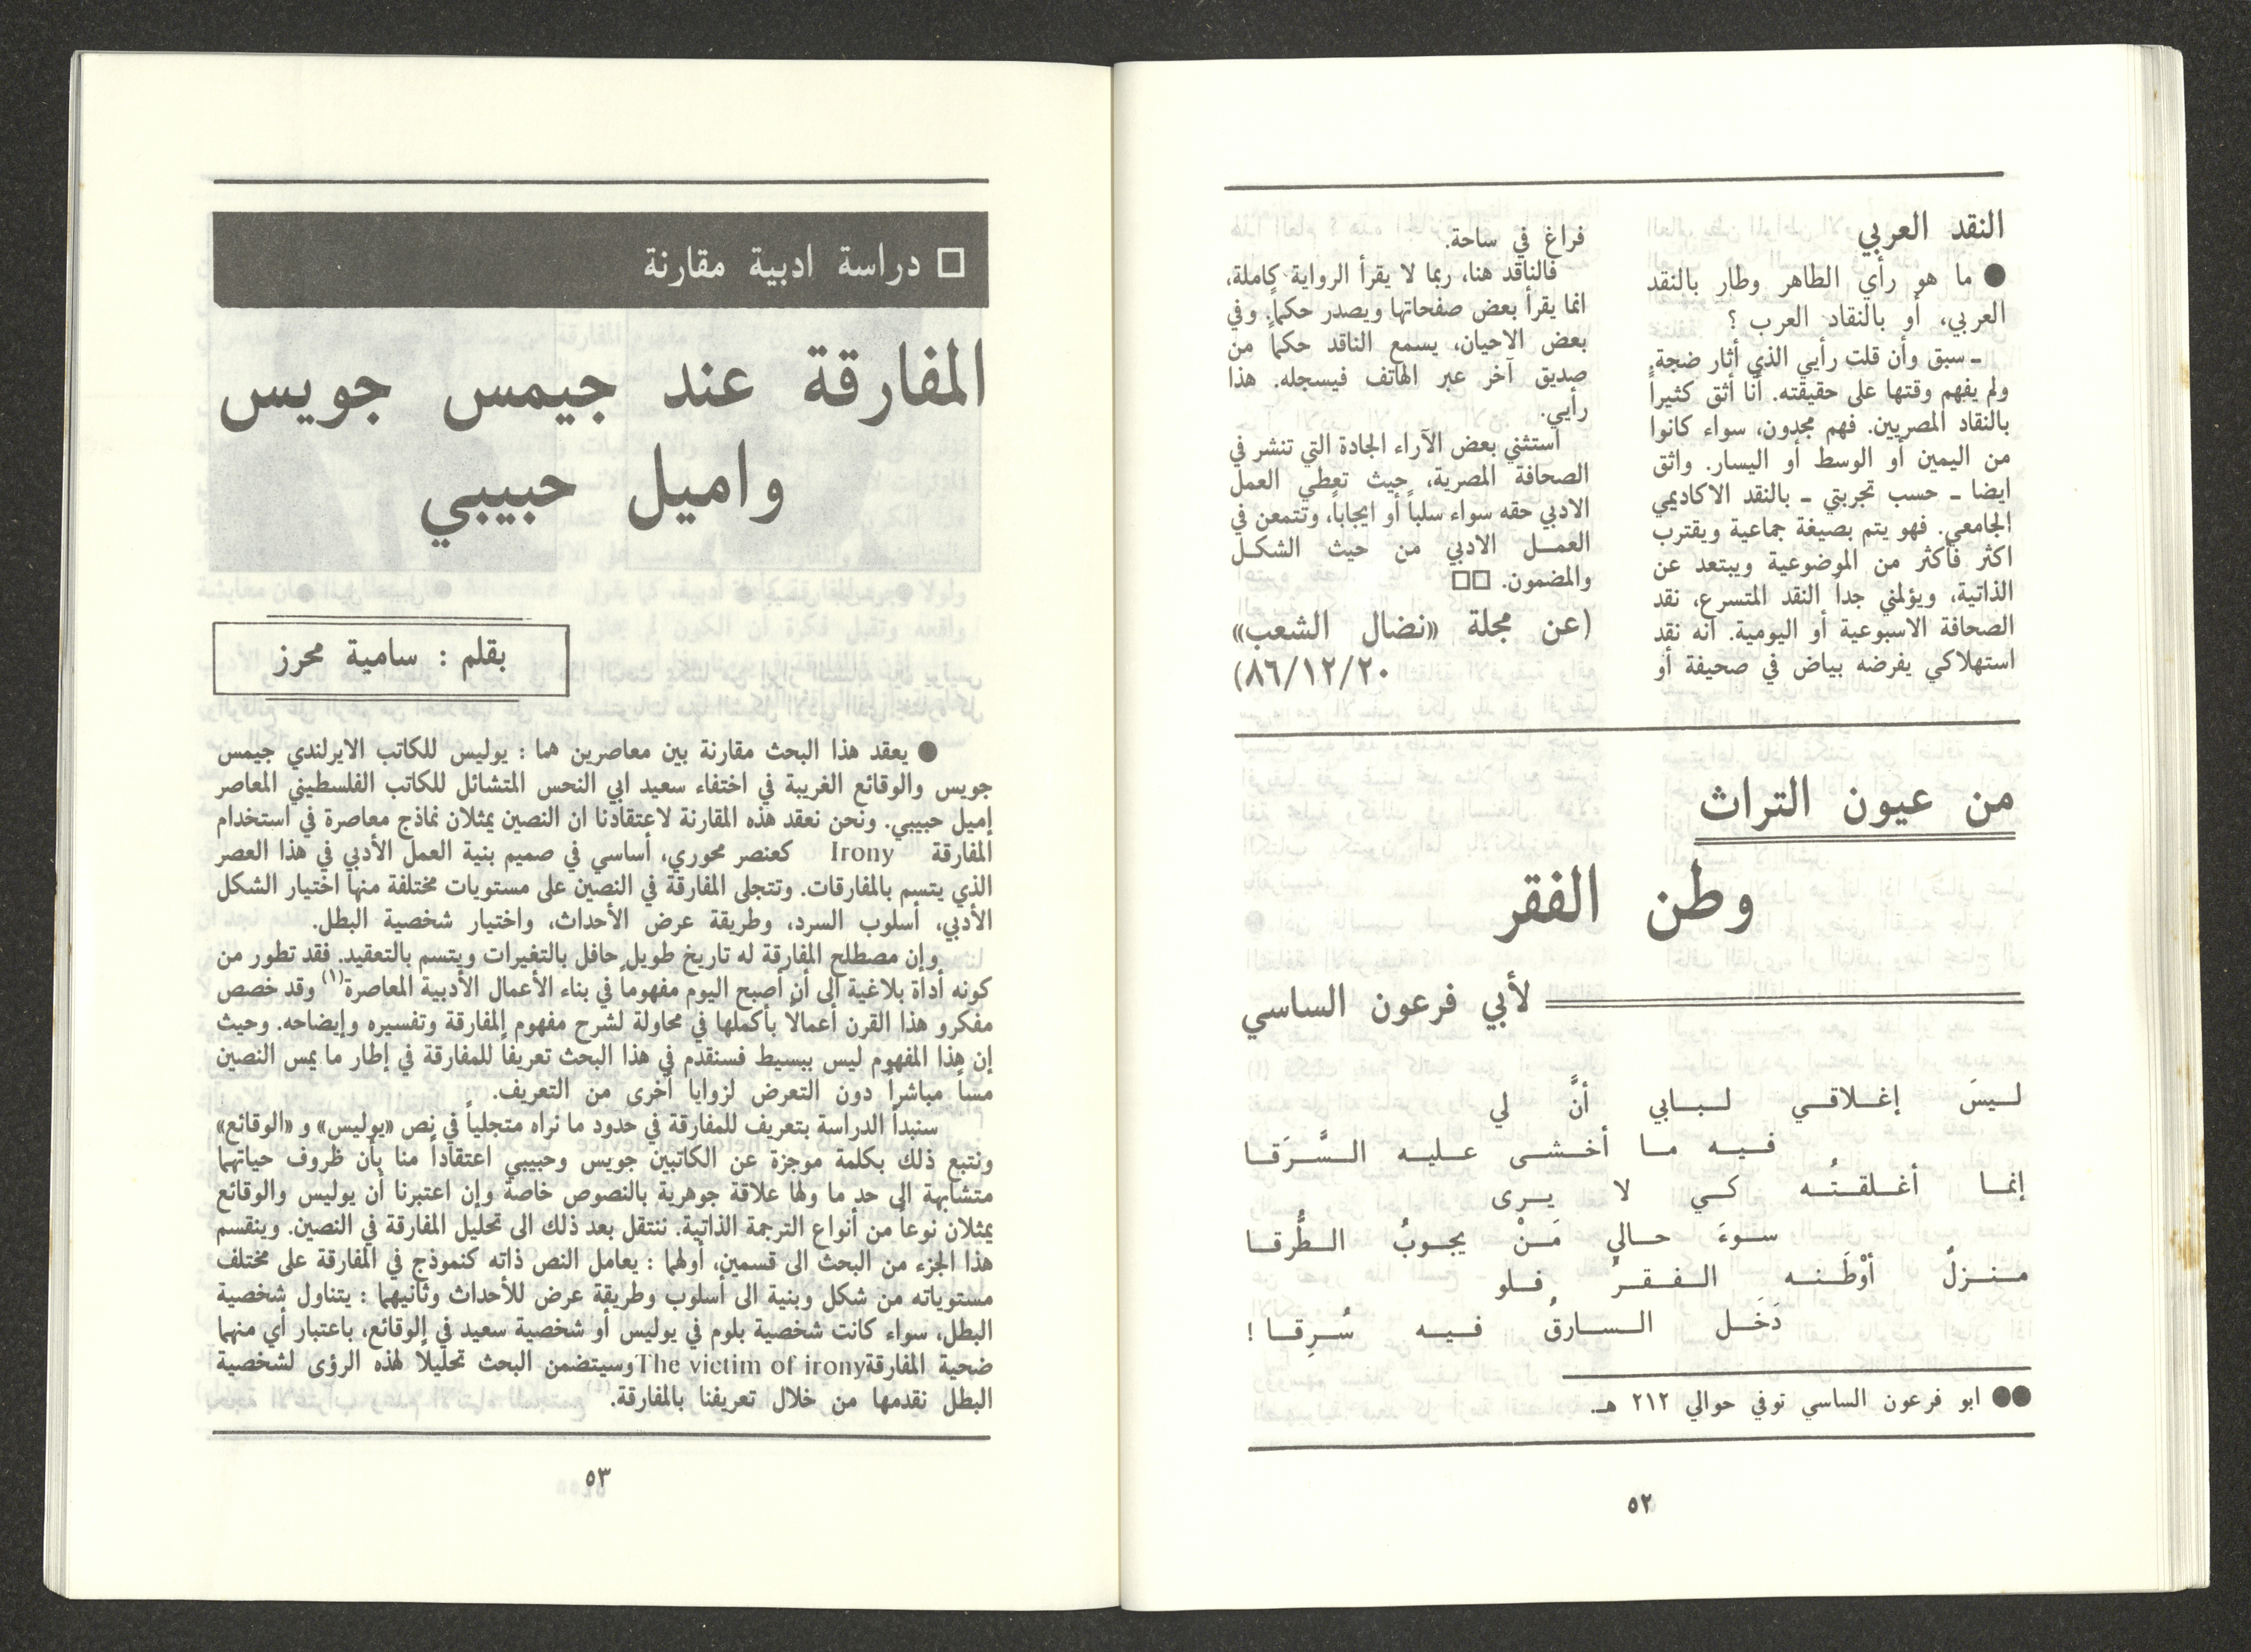 النقد العربي
● ما هو رأي الطاهر وطار بالنقد
العربي، أو بالنقاد العرب ؟
ـ سبق وأن قلت رأيي الذي أثار ضجة.
ولم يفهم وقتها على حقيقته. أنا أثق كثيراً
بالنقاد المصريين. فهم مجدون، سواء كانوا
من اليمين أو الوسط أو اليسار. واثق
ايضا ـ حسب تجربتي ـ بالنقد الاكاديمي
الجامعي. فهو يتم بصيغة جماعية ويقترب
اكثر فأكثر من الموضوعية ويبتعد عن
الذاتية، ويؤلمني جداً النقد المتسرع، نقد
الصحافة الاسبوعية أو اليومية. انه نقد
استهلاكي يفرضه بياض في صحيفة أو
فراغ في ساحة.
فالناقد هنا، ربما لا يقرأ الرواية كاملة،
انما يقرأ بعض صفحاتها ويصدر حكماً. وفي
بعض الاحيان، يسمع الناقد حكماً من
صديق آخر عبر الهاتف فيسجله. هذا
رأيي.
استثني بعض الآراء الجادة التي تنشر في
الصحافة المصرية، حيث تعطي العمل
الادبي حقه سواء سلباً أو ايجاباً، وتتمعن في
العمـــل الادبي من حيث الشكـــل
والمضمون. □□
(عن مجلة «نضال الشعب»
٨٦/١٢/٢٠)
من عيون التراث
وطن الفقر
لأبي فرعون الساسي
لـيـسَ إغـلاقـي لـبـابي أنَّ لي
فـيـه مـا أخـشـى عـلـيـه الـسَّـرَقـا
إنمـا أغـلـقـتُـه كـي لا يـرى
سـوءَ حـالي مَـنْ يجـوبُ الـطُّـرقـا
مـنـزلٌ أوْطَـنـه الـفـقـرُ فـلو
دَخَـل الـسـارقُ فـيـه سُـرِقـا !
●● ابو فرعون الساسي توفي حوالي ٢١٢ هـ.
٥٢
□ دراسة ادبية مقارنة
المفارقة عند جيمس جويس
واميل حبيبي
بقلم : سامية محرز
● يعقد هذا البحث مقارنة بين معاصرين هما : يوليس للكاتب الايرلندي جيمس
جويس والوقائع الغريبة في اختفاء سعيد ابي النحس المتشائل للكاتب الفلسطيني المعاصر
إميل حبيبي. ونحن نعقد هذه المقارنة لاعتقادنا ان النصين يمثلان نماذج معاصرة في استخدام
المفارقة Irony كعنصر محوري، أساسي في صميم بنية العمل الأدبي في هذا العصر
الذي يتسم بالمفارقات. وتتجلى المفارقة في النصين على مستويات مختلفة منها اختيار الشكل
الأدبي، أسلوب السرد، وطريقة عرض الأحداث، واختيار شخصية البطل.
وإن مصطلح المفارقة له تاريخ طويل حافل بالتغيرات ويتسم بالتعقيد. فقد تطور من
كونه أداة بلاغية الى أن أصبح اليوم مفهوماً في بناء الأعمال الأدبية المعاصرة(١) وقد خصص
مفكرو هذا القرن أعمالاً بأكملها في محاولة لشرح مفهوم المفارقة وتفسيره وإيضاحه. وحيث
إن هذا المفهوم ليس ببسيط فسنقدم في هذا البحث تعريفاً للمفارقة في إطار ما يمس النصين
مساً مباشراً دون التعرض لزوايا أخرى من التعريف.
سنبدأ الدراسة بتعريف للمفارقة في حدود ما نراه متجلياً في نص «يوليس» و «الوقائع»
ونتبع ذلك بكلمة موجزة عن الكاتبين جويس وحبيبي اعتقاداً منا بأن ظروف حياتهما
متشابهة الى حد ما ولها علاقة جوهرية بالنصوص خاصة وإن اعتبرنا أن يوليس والوقائع
يمثلان نوعاً من أنواع الترجمة الذاتية. ننتقل بعد ذلك الى تحليل المفارقة في النصين. وينقسم
هذا الجزء من البحث الى قسمين، أولهما : يعامل النص ذاته كنموذج في المفارقة على مختلف
مستوياته من شكل وبنية الى أسلوب وطريقة عرض للأحداث وثانيهما : يتناول شخصية
البطل، سواء كانت شخصية بلوم في يوليس أو شخصية سعيد في الوقائع، باعتبار أي منهما
ضحية المفارقةThe victim of ironyوسيتضمن البحث تحليلاً لهذه الرؤى لشخصية
البطل نقدمها من خلال تعريفنا بالمفارقة.
٥٣